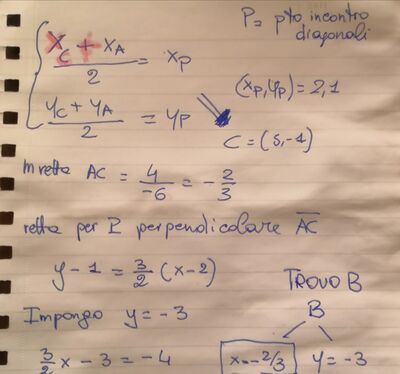 P = pto incontro
diagonali
{ (x_C + x_A)/2 = x_P
(x_P, y_P) = 2,1
(y_C + y_A)/2 = y_P
C = (5,-1)
m retta AC = 4/-6 = -2/3
retta per P perpendicolare AC
y - 1 = 3/2 (x-2)
TROVO B
B
Impongo y = -3
x = -2/3 y = -3
3/2 x - 3 = -4